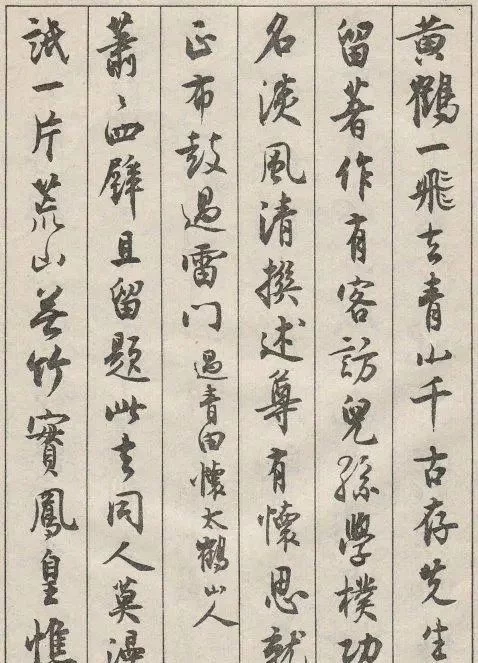 黄鹤一飛去青山千古存先生
留著作有客訪兒孫學樸功
名淡風清撰述尊有懷思就
正布鼓過雷门 過青田懷太鶴山人
蕭〻四壁且留題此去同人莫浪
詆一片荒山無竹實鳳皇惟